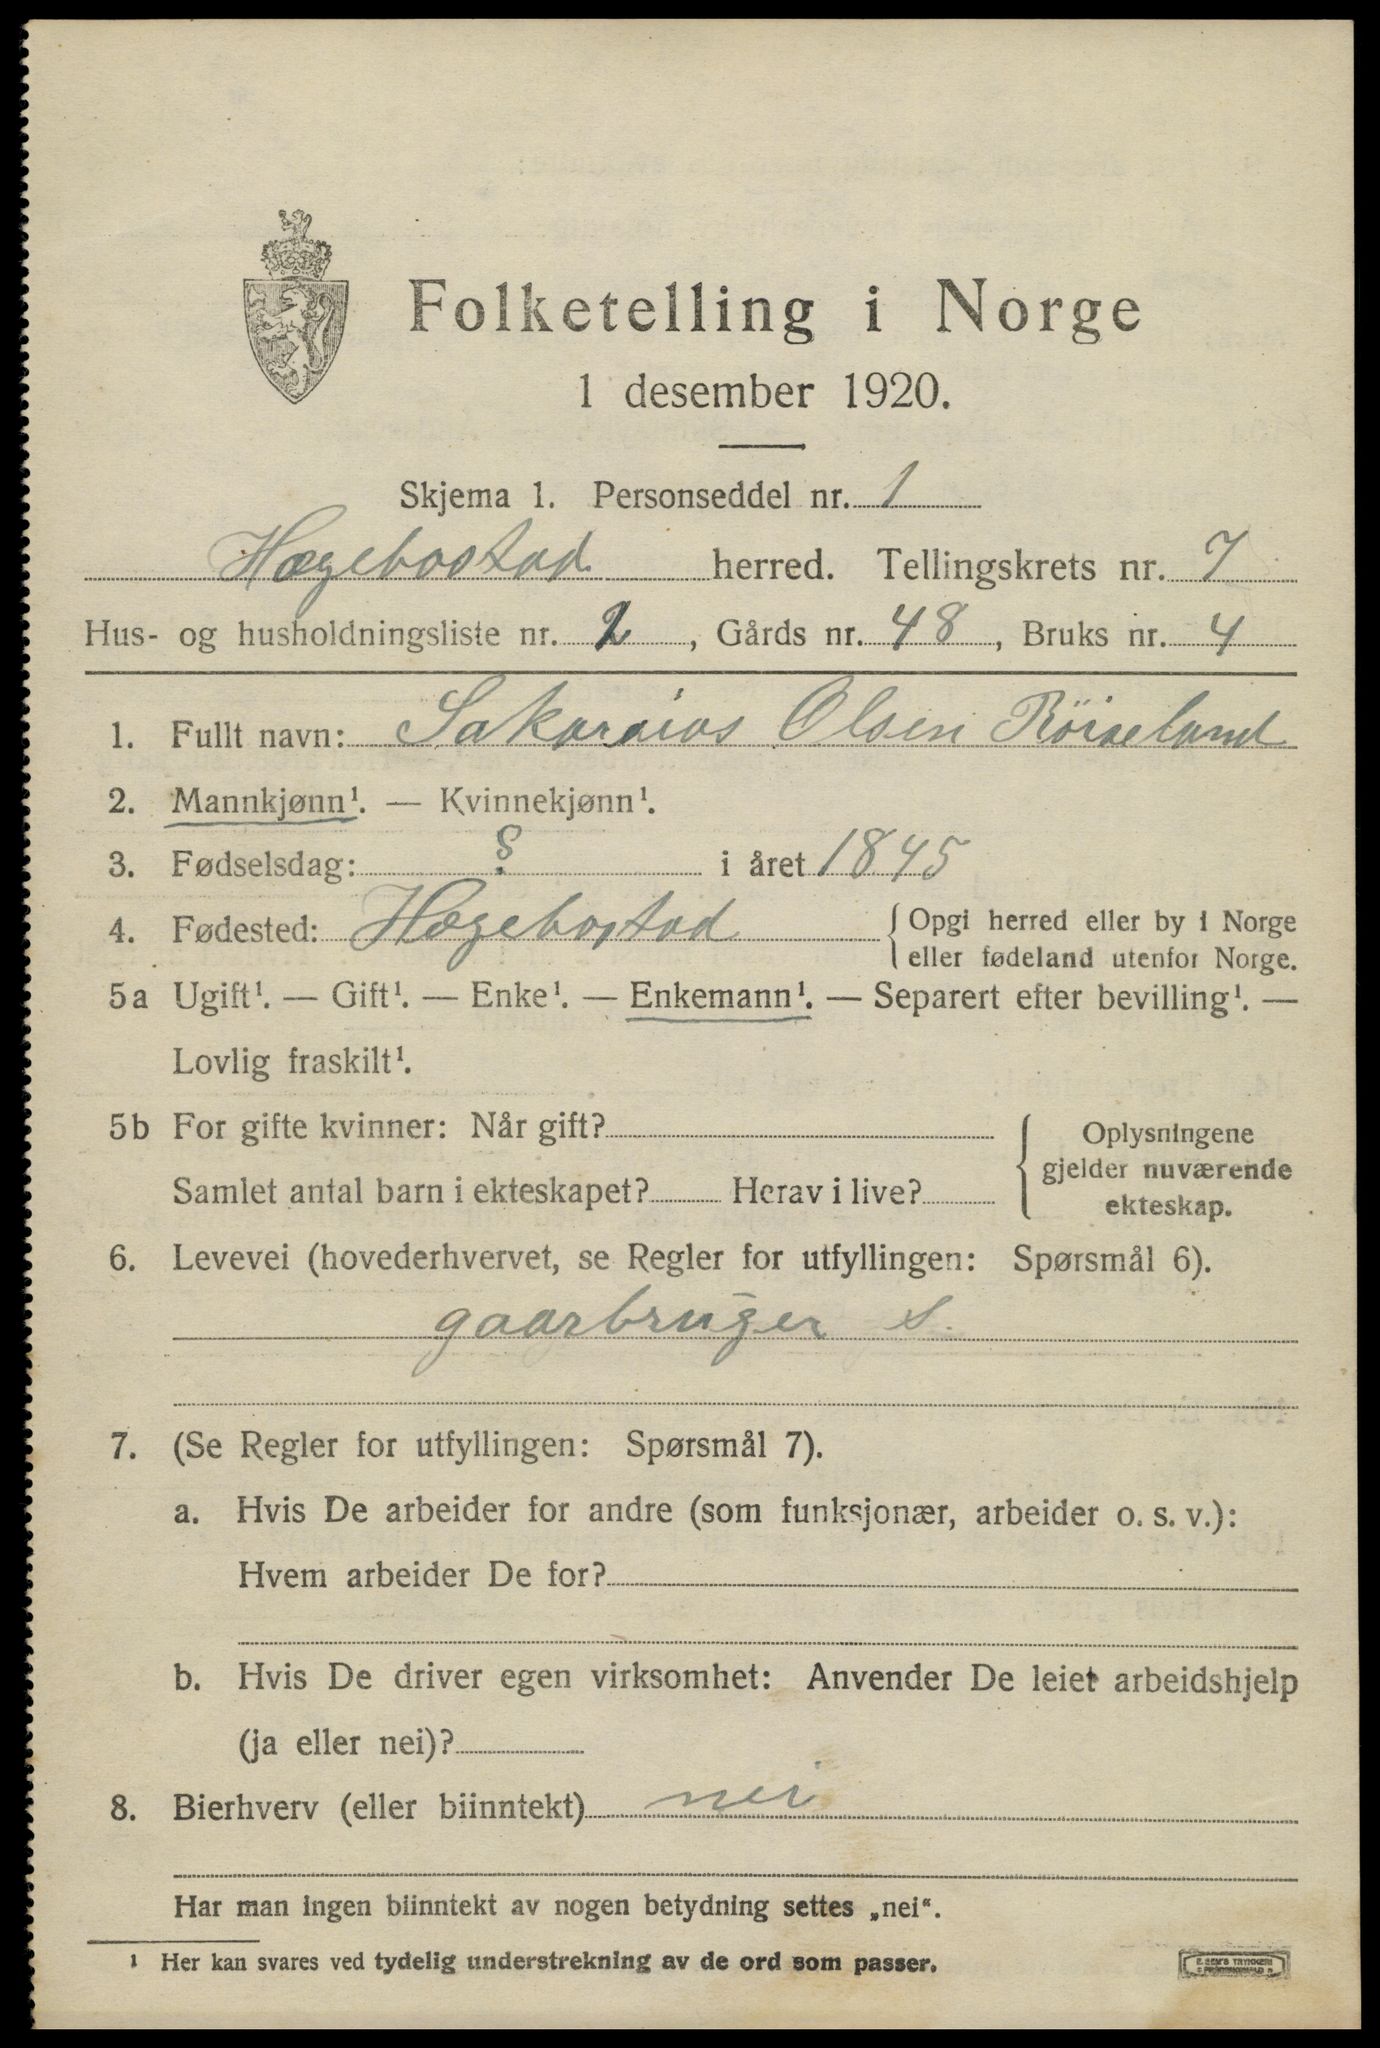 Folketelling i Norge
1 desember 1920.
Skjema 1. Personseddel nr. 1
Hægebostad herred. Tellingskrets nr. 7
Hus- og husholdningsliste nr. 2, Gårds nr. 48, Bruks nr. 4
1. Fullt navn: Sakarias Olsen Röiseland
2. Mannkjønn¹. — Kvinnekjønn¹.
3. Fødselsdag: ? i året 1845
4. Fødested: Hægebostad { Opgi herred eller by i Norge
eller fødeland utenfor Norge.
5a Ugift¹. — Gift¹. — Enke¹. — Enkemann¹. — Separert efter bevilling¹. —
Lovlig fraskilt¹.
5b For gifte kvinner: Når gift?
Samlet antal barn i ekteskapet? Herav i live?
{ Oplysningene
gjelder nuværende
ekteskap.
6. Levevei (hovederhvervet, se Regler for utfyllingen: Spørsmål 6).
gaarbruger s.
7. (Se Regler for utfyllingen: Spørsmål 7).
a. Hvis De arbeider for andre (som funksjonær, arbeider o. s. v.):
Hvem arbeider De for?
b. Hvis De driver egen virksomhet: Anvender De leiet arbeidshjelp
(ja eller nei)?
8. Bierhverv (eller biinntekt) nei
Har man ingen biinntekt av nogen betydning settes „nei“.
1 Her kan svares ved tydelig understrekning av de ord som passer.